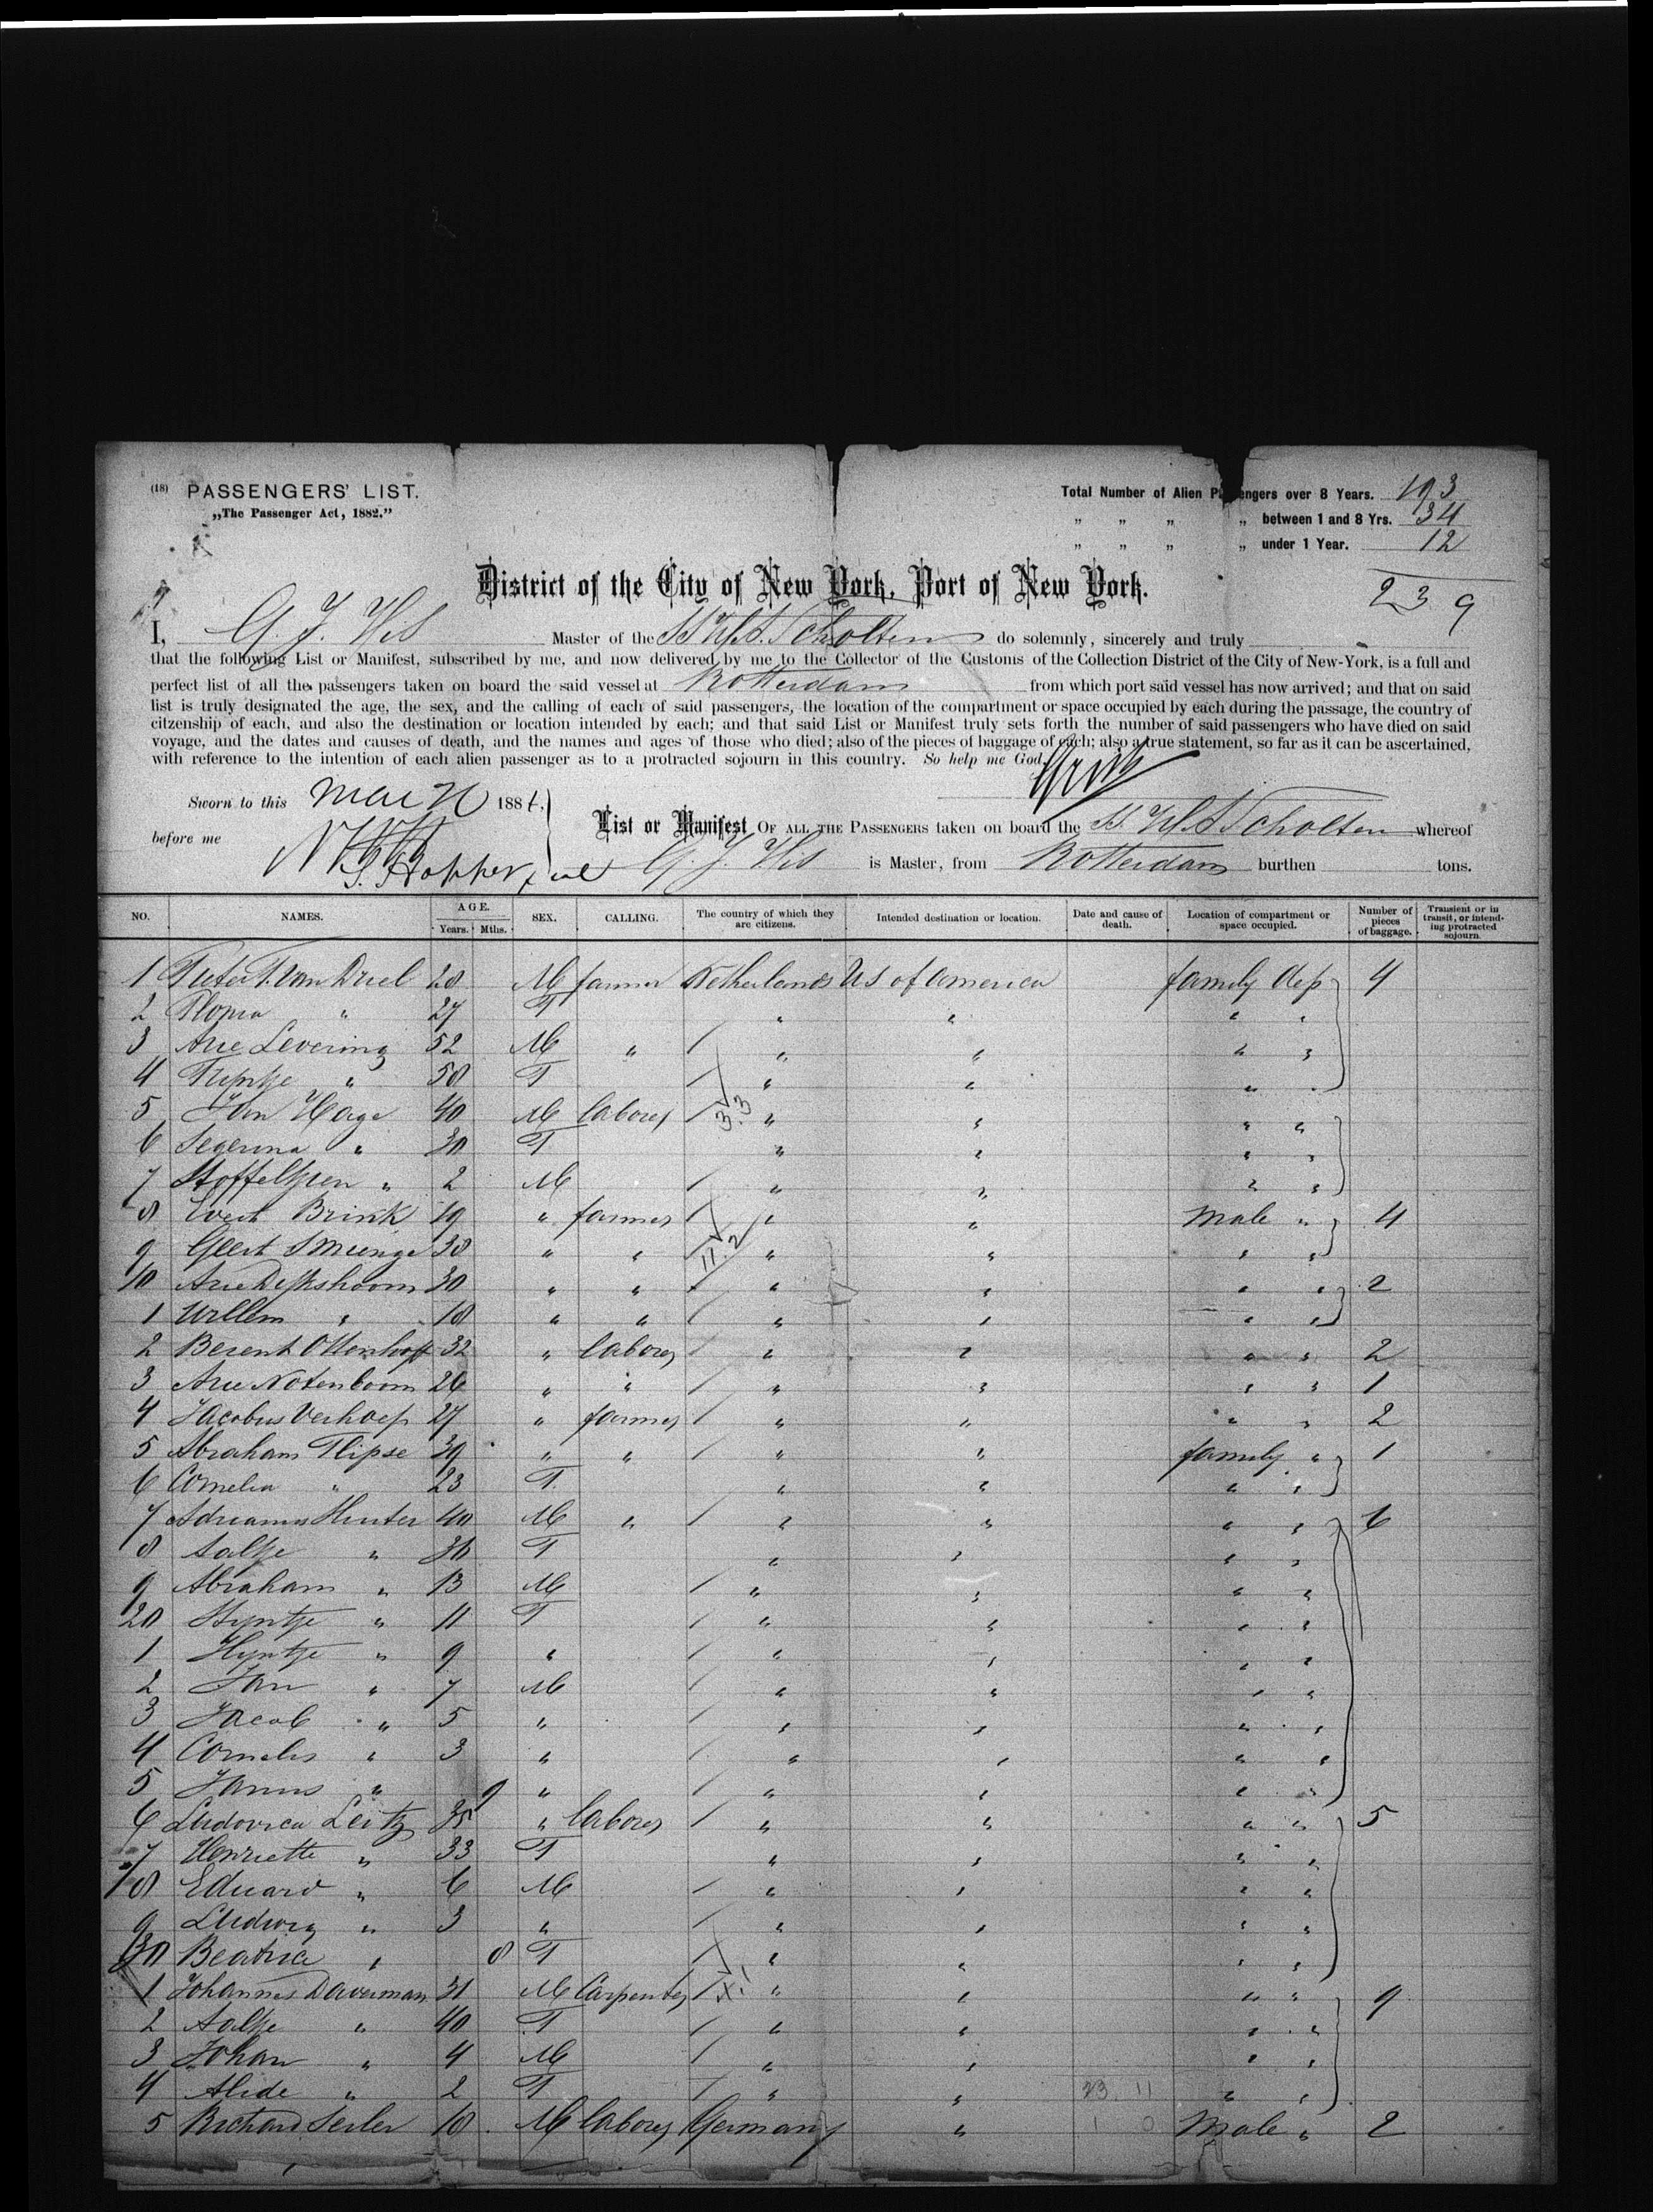 (18) PASSENGERS' LIST.
„The Passenger Act, 1882."
Total Number of Alien Passengers over 8 Years. 193
„ „ „ „ between 1 and 8 Yrs. 34
„ „ „ „ under 1 Year. 12
239
District of the City of New York, Port of New York.
I, G. J. Vis Master of the SS W. A. Scholten do solemnly, sincerely and truly
that the following List or Manifest, subscribed by me, and now delivered by me to the Collector of the Customs of the Collection District of the City of New-York, is a full and
perfect list of all the passengers taken on board the said vessel at Rotterdam from which port said vessel has now arrived; and that on said
list is truly designated the age, the sex, and the calling of each of said passengers, the location of the compartment or space occupied by each during the passage, the country of
citzenship of each, and also the destination or location intended by each; and that said List or Manifest truly sets forth the number of said passengers who have died on said
voyage, and the dates and causes of death, and the names and ages of those who died; also of the pieces of baggage of each; also a true statement, so far as it can be ascertained,
with reference to the intention of each alien passenger as to a protracted sojourn in this country. So help me God.
Sworn to this Mar 20 188
before me Hopper
List or Manifest OF ALL THE PASSENGERS taken on board the SS W A Scholten whereof
G. J. Vis is Master, from Rotterdam burthen tons.
NO. NAMES. AGE. Years. Mths. SEX. CALLING. The country of which they are citizens. Intended destination or location. Date and cause of death. Location of compartment or space occupied. Number of pieces of baggage. Transient or in transit, or intending protracted sojourn.
1 Pieter van Driel 28 M farmer Netherlands US of America family dep 4
2 " 27 F " " " "
3 Arie Levering 52 M " " " " "
4 " 58 F " " "
5 Jan Hage 40 M labourer 3.3 " " " "
6 Segerina " 30 F " " " "
7 " 2 M " " " "
8 Evert Brink 19 " farmer " " Male " 4
9 Geert 38 " " 11.2 " " " "
10 Arie Dykshoorn 30 " " " " " " 2
1 Willem " 18 " " " " " "
2 Berent Ottenhoff 32 " labourer " " " " 2
3 Arie Notenboom 26 " " " " " " 1
4 Jacobus Verhoef 27 " farmer " " " " 2
5 Abraham Flipse 39 " " " " family " 1
6 Cornelia " 23 F " " " "
7 Adrianus Huster 40 M " " " " " 6
8 Aaltje " 36 F " " " "
9 Abraham " 13 M " " " "
20 " 11 F " " " "
1 " 9 " " " " "
2 Jan " 7 M " " " "
3 Jacob " 5 " " " " "
4 Cornelis " 3 " " " " "
5 Janus " 9 " " " " "
6 Ludovica Leitz 35 " labourer " " " " 5
7 Henriette " 33 F " " " "
8 Eduard " 6 M " " " "
9 Ludwig " 3 " " " " "
30 Beatrice " 8 F " " " "
1 Johannes Daverman 31 M Carpenter " " " " 9
2 Aaltje " 40 F " " " "
3 Johan " 4 M " " " "
4 Alide " 2 F " " 23. 11 " "
5 Richard Seiler 18 M labourer Germany " 1 0 Male " 2